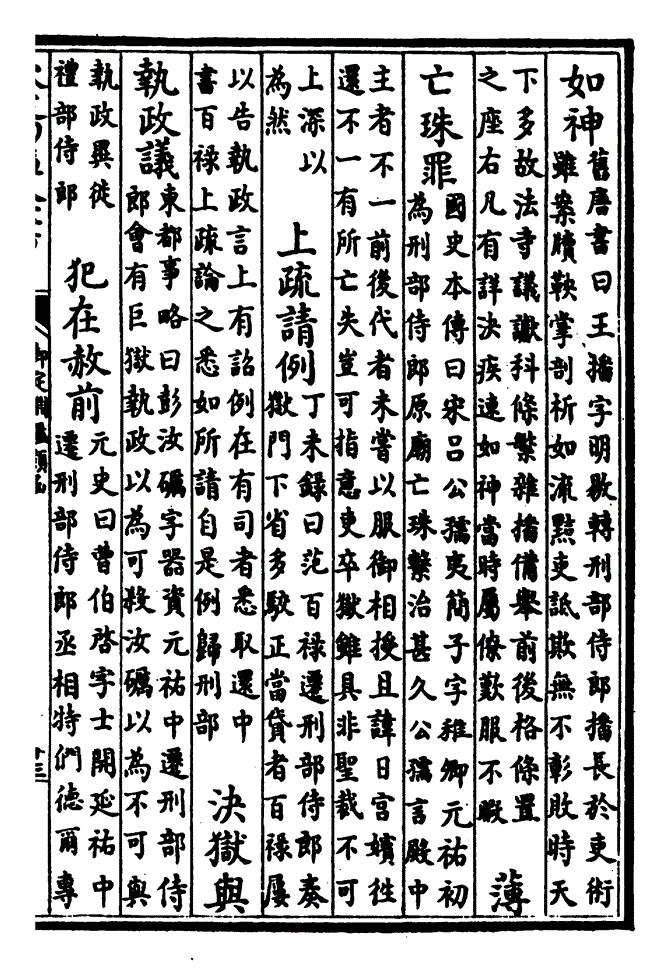 如神
舊唐書曰王播字明敭轉刑部侍郎播長於吏術
雖案牘鞅掌剖析如流黠吏詆欺無不彰敗時天
下多故法寺議讞科條繁雜播備舉前後格條置
之座右凡有詳決疾速如神當時屬僚歎服不暇
薄
亡珠罪
國史本傳曰宋呂公孺夷簡子字稚卿元祐初
為刑部侍郎原廟亡珠繫治甚久公孺言殿中
主者不一前後代者未嘗以服御相授且諱日宮嬪徃
還不一有所亡失豈可指意吏卒獄雖具非聖裁不可
上深以
為然
上疏請例
丁未錄曰范百祿遷刑部侍郎奏
獄門下省多駮正當貸者百祿屢
以告執政言上有詔例在有司者悉取還中
書百祿上疏論之悉如所請自是例歸刑部
決獄與
執政議
東都事略曰彭汝礪字器資元祐中遷刑部侍
郎會有巨獄執政以為可殺汝礪以為不可與
執政異徙
禮部侍郎
犯在赦前
元史曰曹伯啓字士開延祐中
遷刑部侍郎丞相特們德爾專
御定淵鑑類函